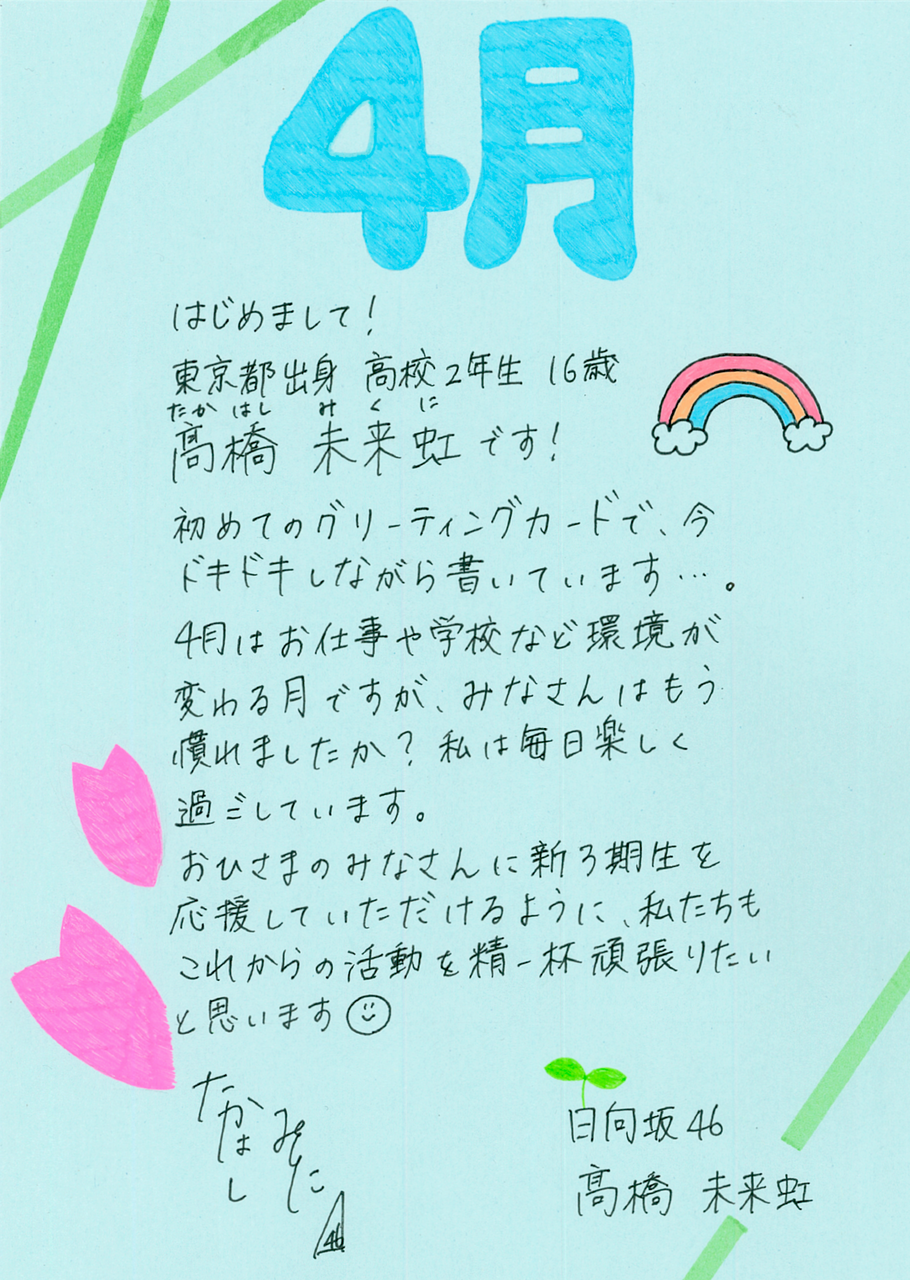 4月
はじめまして!
東京都出身 高校2年生 16歳
たかはし みくに
髙橋 未来虹です!
初めてのグリーティングカードで、今
ドキドキしながら書いています…。
4月はお仕事や学校など環境が
変わる月ですが、みなさんはもう
慣れましたか?私は毎日楽しく
過ごしています。
おひさまのみなさんに新3期生を
応援していただけるように、私たちも
これからの活動を精一杯頑張りたい
と思います
たかはし
みくに
46
日向坂46
髙橋 未来虹